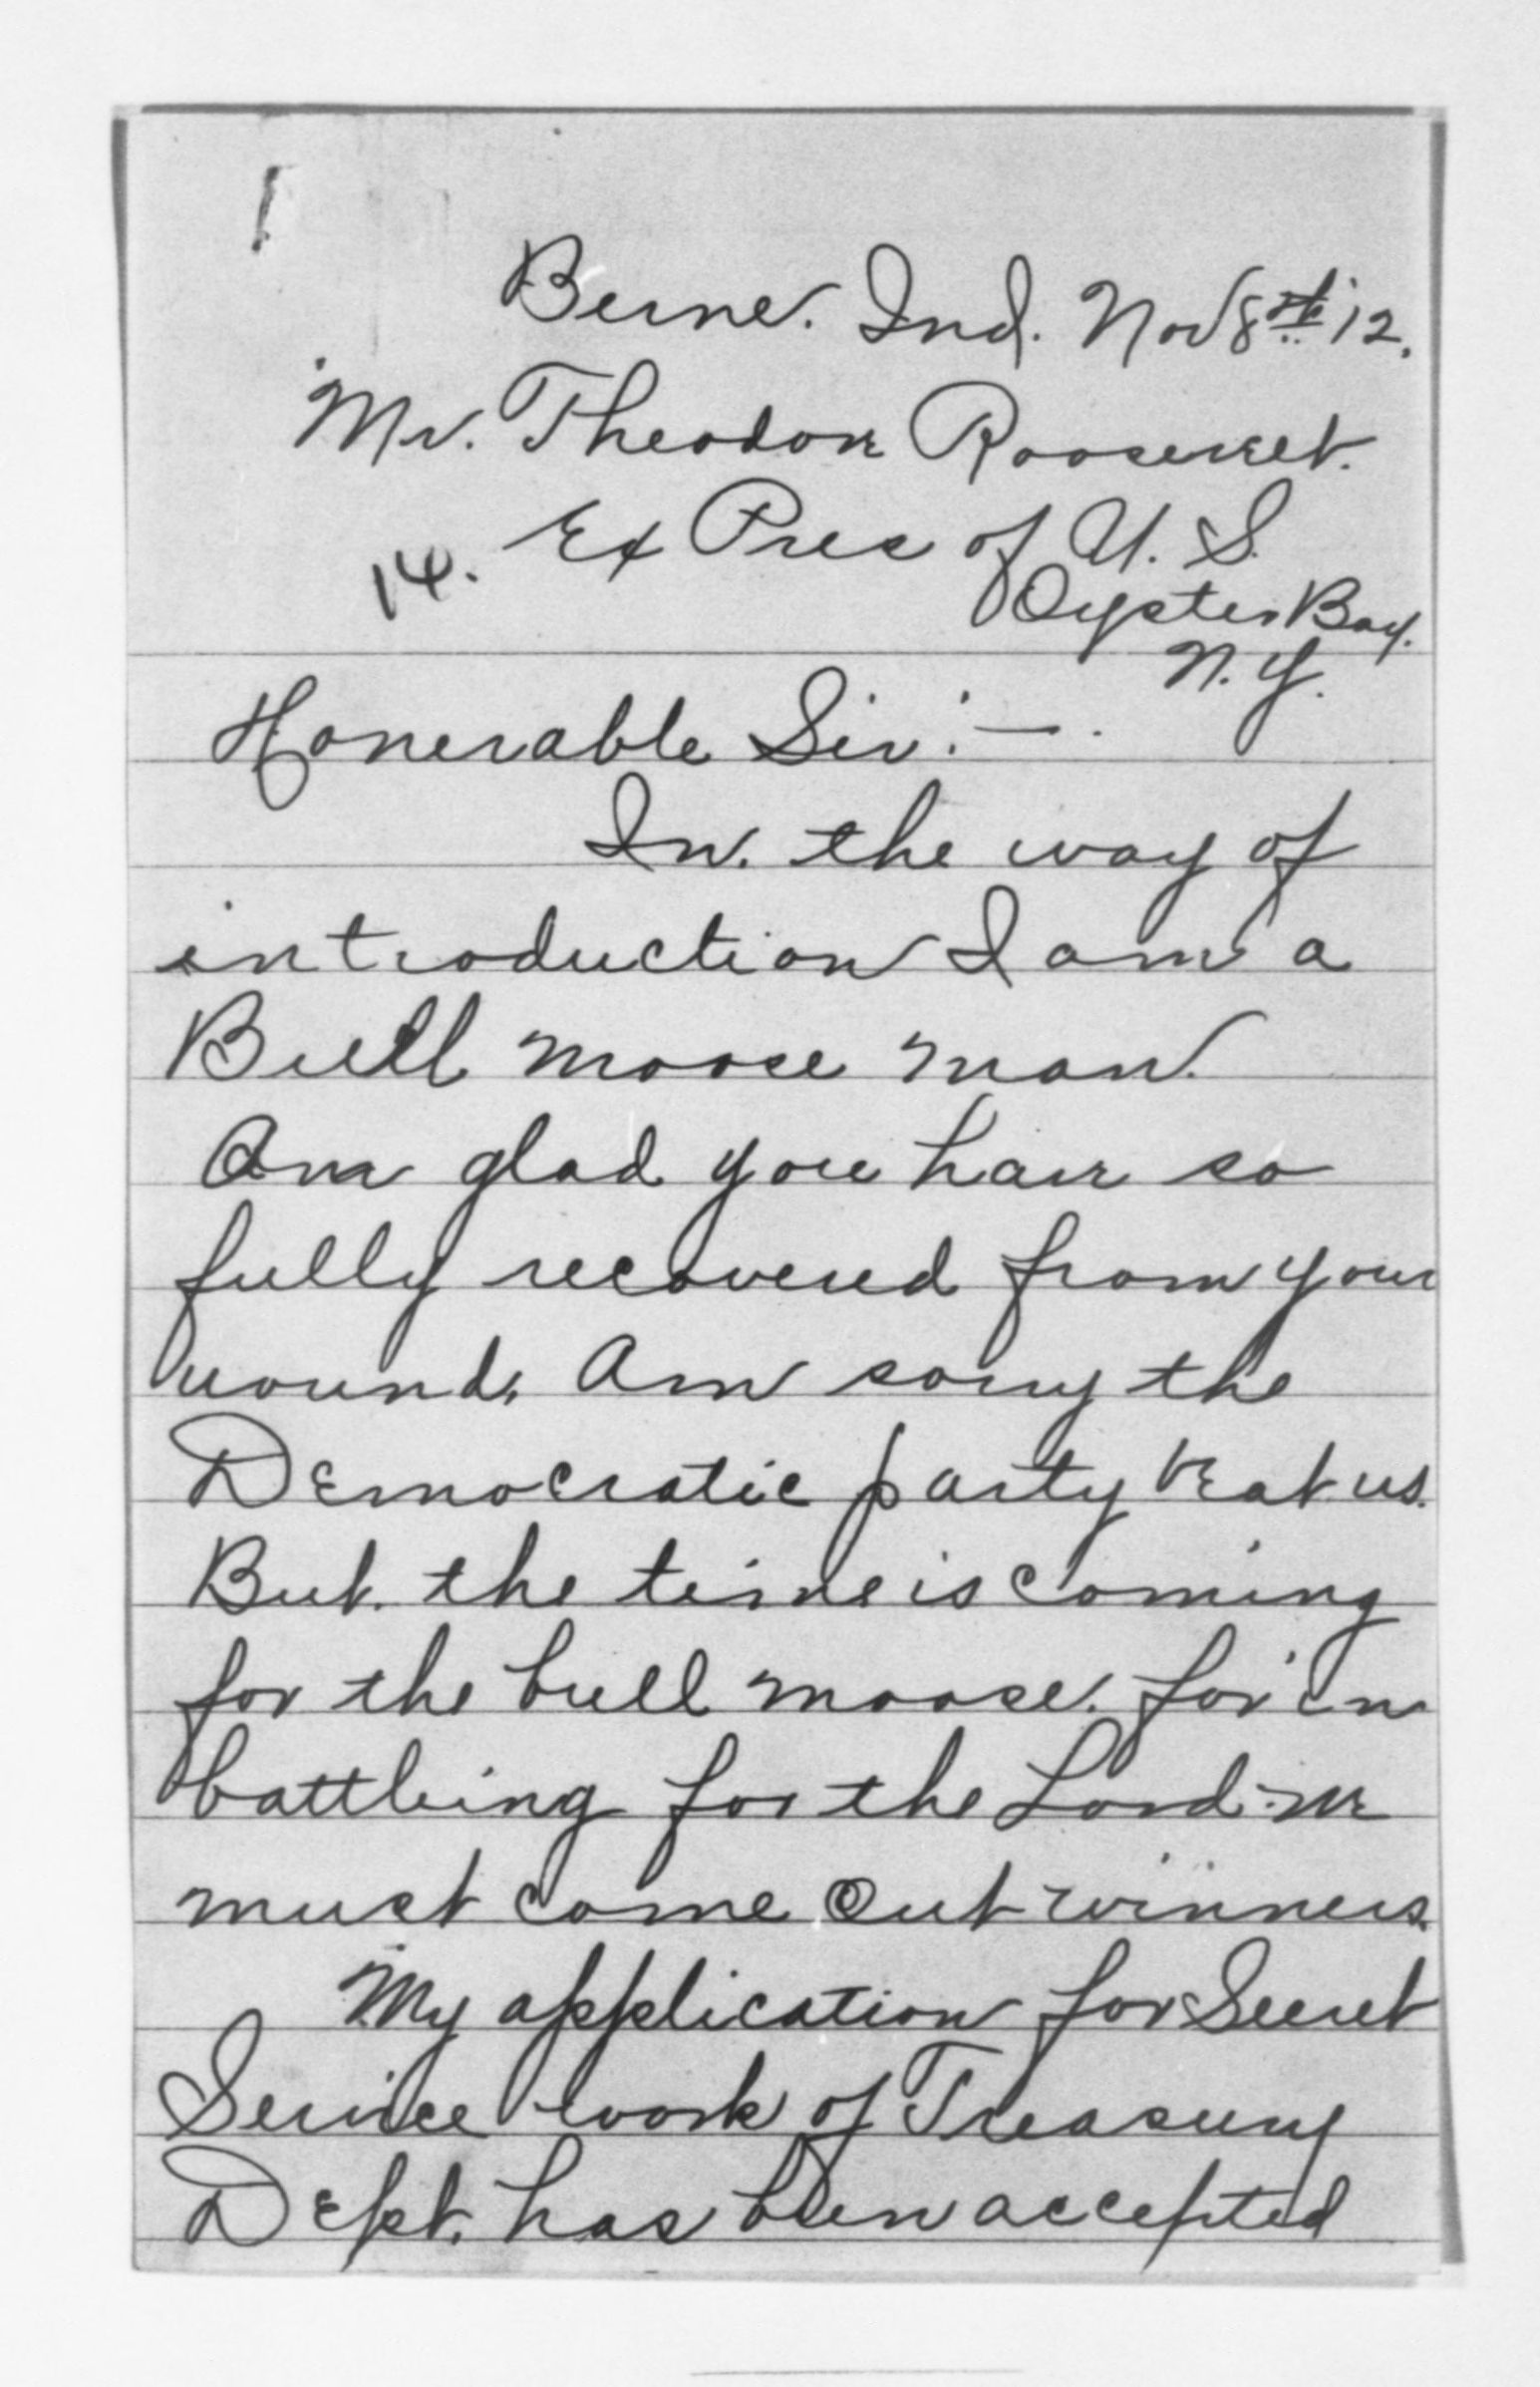 Berne. Ind. Nov 8th '12.
Mr. Theodore Roosevelt.
Ex Pres of U. S.
14.
Oyster Bay.
N. Y.
Honerable Sir:-.
In. the way of
introduction I am a
Bull moose man.
Am glad you have so
fully recovered from your
wound. Am sorry the
Democratic party beat us.
But. the time is coming
for the bull moose. for in
battleing for the Lord we
must come out winners.
My application for Secret
Service work of Treasury
Dept. has been accepted